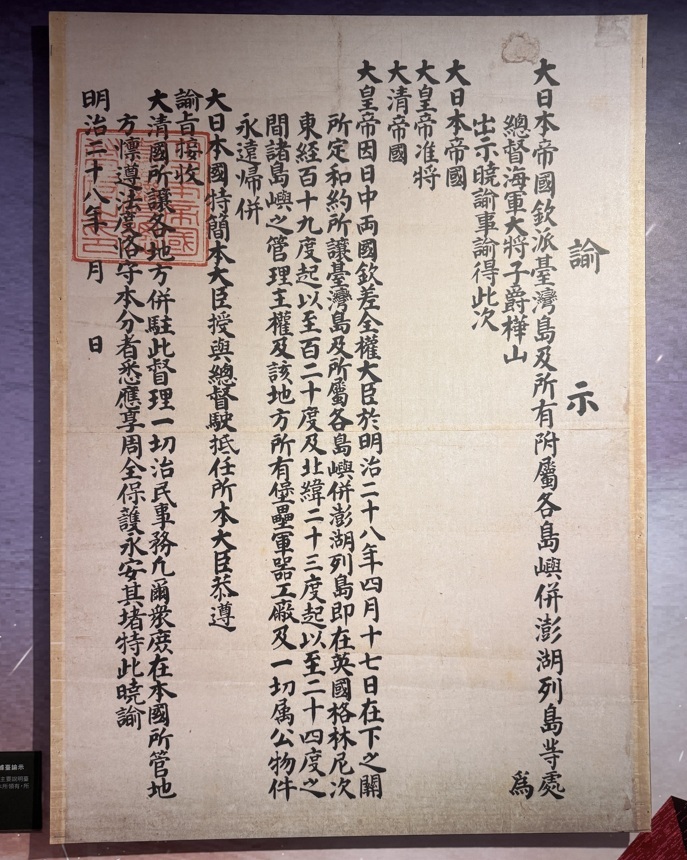 諭示
大日本帝國欽派臺灣島及所有附屬各島嶼併澎湖列島等處
總督海軍大將子爵樺山
為
出示曉諭事諭得此次
大日本帝國
大皇帝准將
大清帝國
大皇帝因日中両國欽差全權大臣於明治二十八年四月十七日在下之關
所定和約所讓臺灣島及所屬各島嶼併澎湖列島即在英國格林尼次
東経百十九度起以至百二十度及北緯二十三度起以至二十四度之
間諸島嶼之管理主權及該地方所有堡壘軍器工廠及一切属公物件
永遠帰併
大日本國特簡本大臣授與總督駛抵任所本大臣恭遵
諭旨接收
大清國所讓各地方併駐此督理一切治民事務凢爾衆庶在本國所管地
方懍遵法度恪守本分者悉應享周全保護永安其堵特此曉諭
明治二十八年 月 日